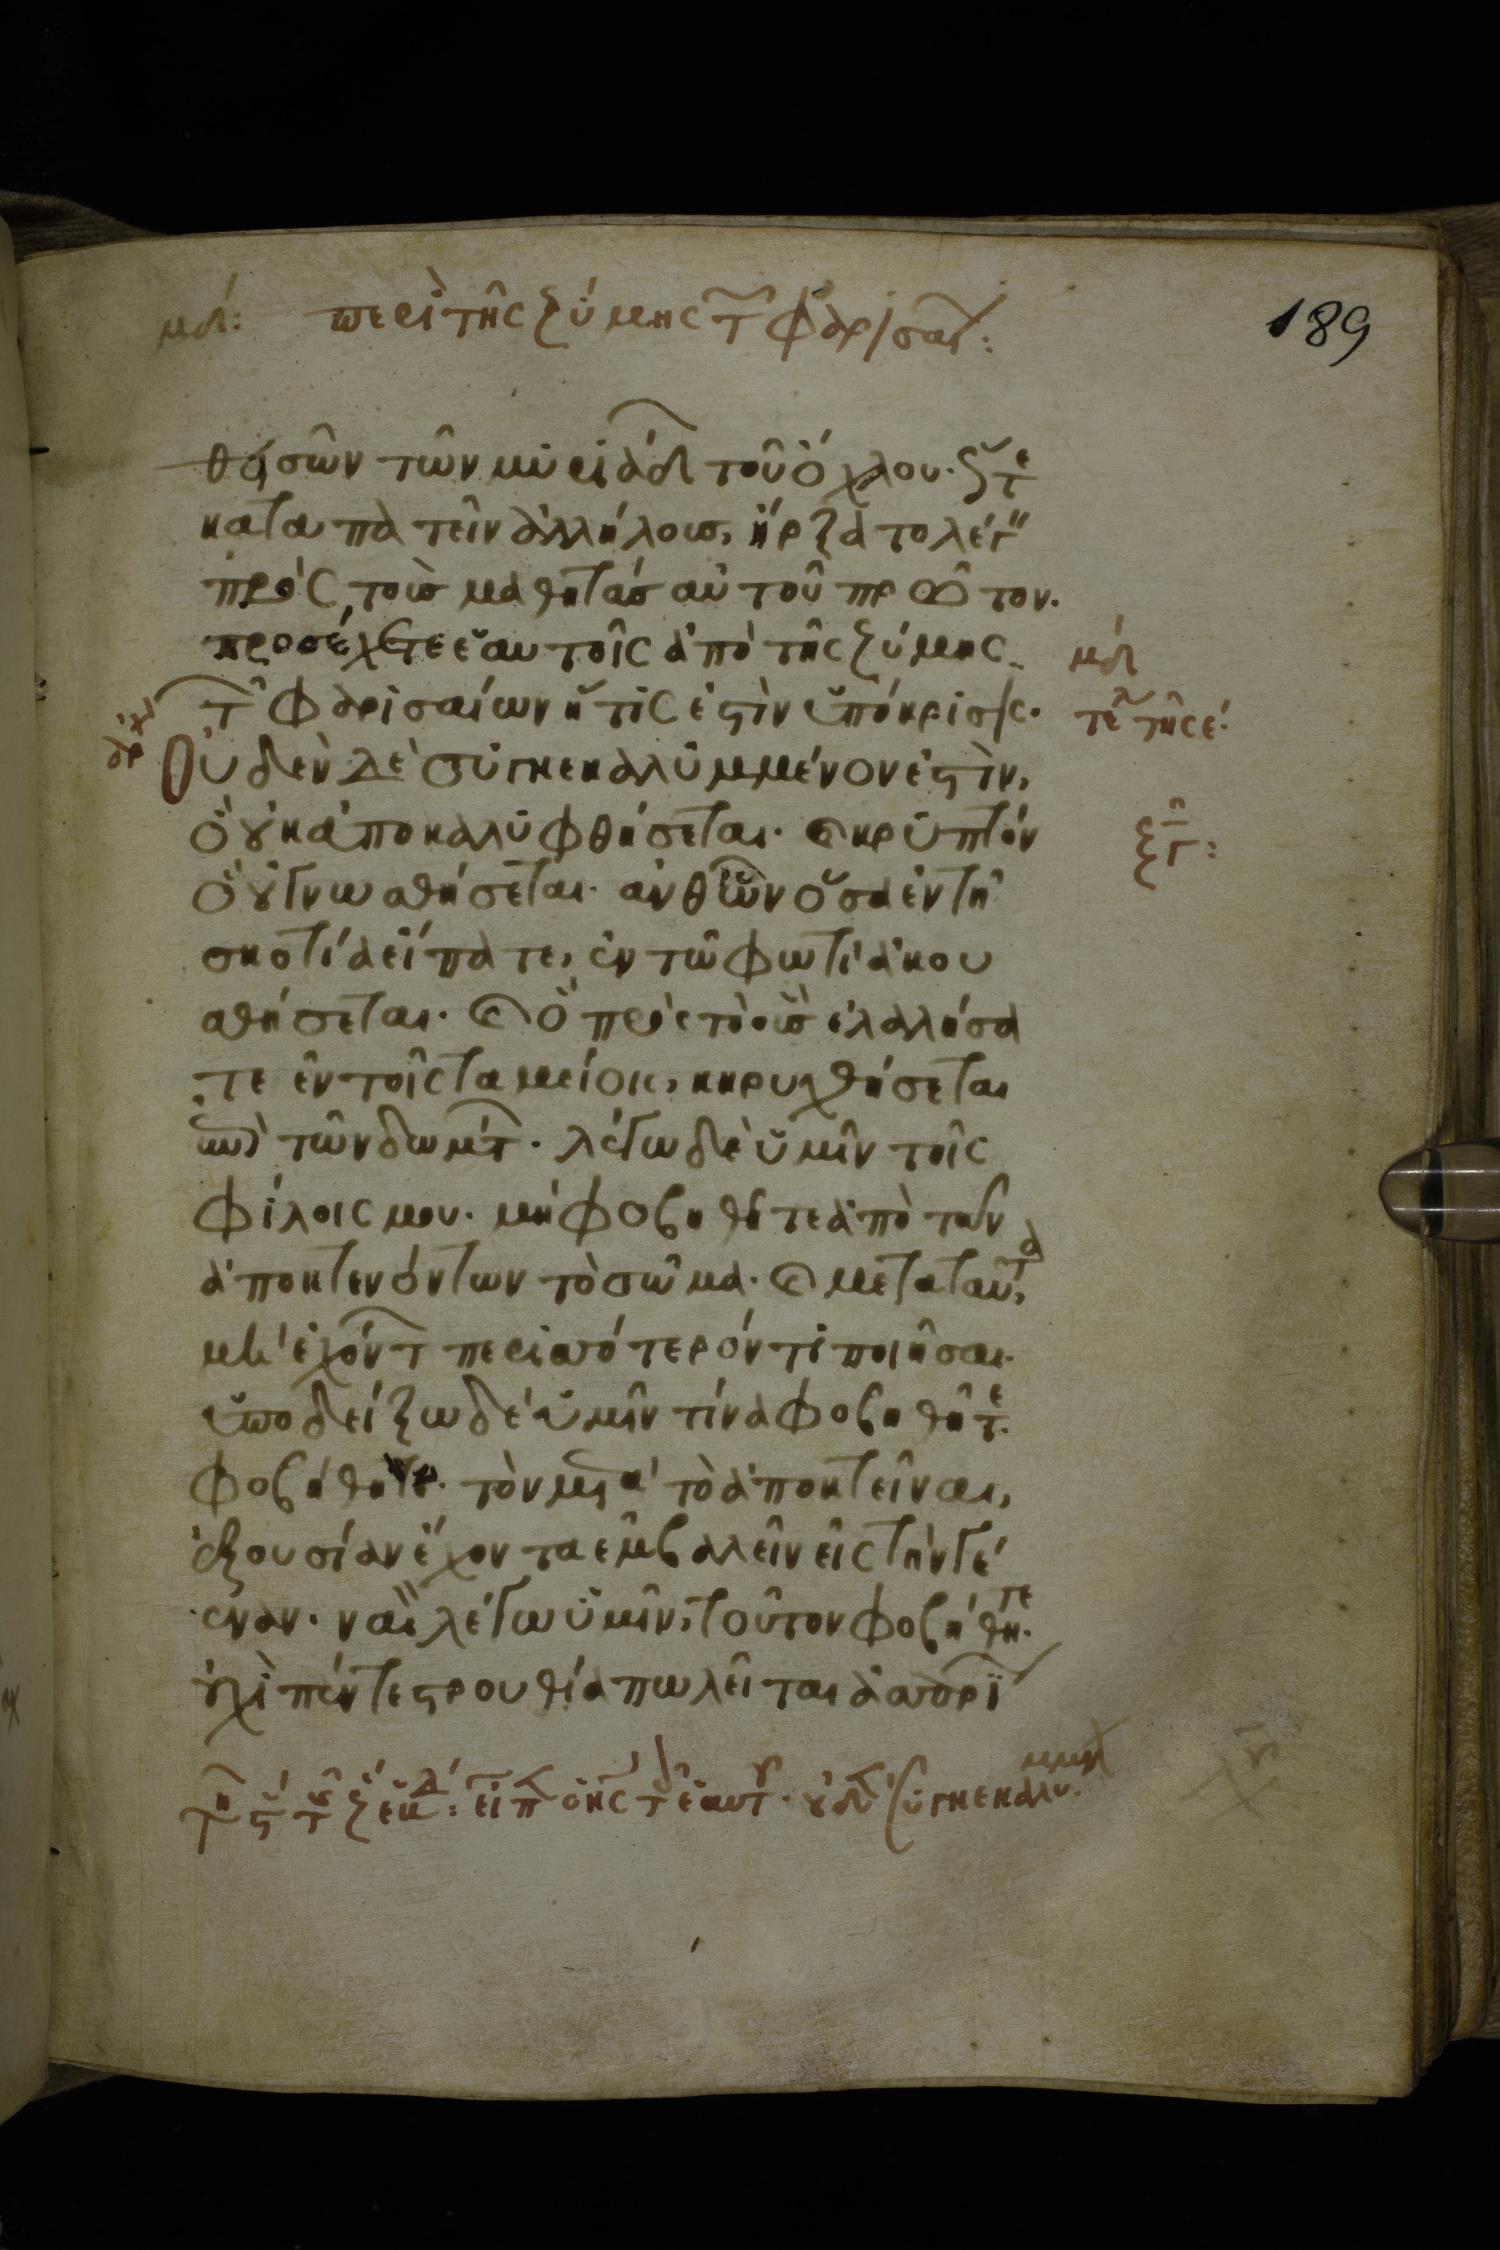 μδ: περὶ τῆς ζύμης τῶ φαρισαι:
189
θεισῶν τῶν μυριάδ τοῦ ὄχλου. ὥστε
καταπατεῖν ἀλλήλους, ἤρξατο λέγ
πρὸς τοὺς μαθητὰς αὐτοῦ πρῶτον.
προσέχετε ἑαυτοῖς ἀπὸ τῆς ζύμης
μδ
τῶ φαρισαίων ἥτις ἐστὶν ὑπόκρισις.
τε τῆς ε
ἀρχ
Οὐδὲν δὲ συγκεκαλυμμένον ἐστὶν,
ὃ οὐκ ἀποκαλυφθήσεται. καὶ κρυπτὸν
ξγ:
ὃ οὐ γνωσθήσεται. ἀνθ ὧν ὅσα ἐν τῆ
σκοτία εἴπατε, ἐν τῶ φωτὶ ἀκου
σθήσεται. καὶ ὃ πρὸς τὸ οὖς ἐλαλήσα
τε ἐν τοῖς ταμείοις, κηρυχθήσεται
ἐπὶ τῶν δωμάτ. λέγω δὲ ὑμῖν τοῖς
φίλοις μου. μὴ φοβηθῆτε ἀπὸ τῶν
ἀποκτενόντων τὸ σῶμα. καὶ μετὰ ταῦτα,
μὴ ἐχόντ περισσότερόν τι ποιῆσαι.
ὑποδείξω δὲ ὑμῖν τίνα φοβηθῆτε.
φοβήθητε. τὸν μετὰ τὸ ἀποκτεῖναι,
ἐξουσίαν ἔχοντα ἐμβαλεῖν εἰς τὴν γέ
εναν. ναὶ λέγω ὑμῖν, τοῦτον φοβήθητε.
οὐχὶ πέντε στρουθία πωλεῖται ἀσσαρί
εἶπ ὁ κς τ ἑαυτ. οὐδ συγκεκαλυμμεν